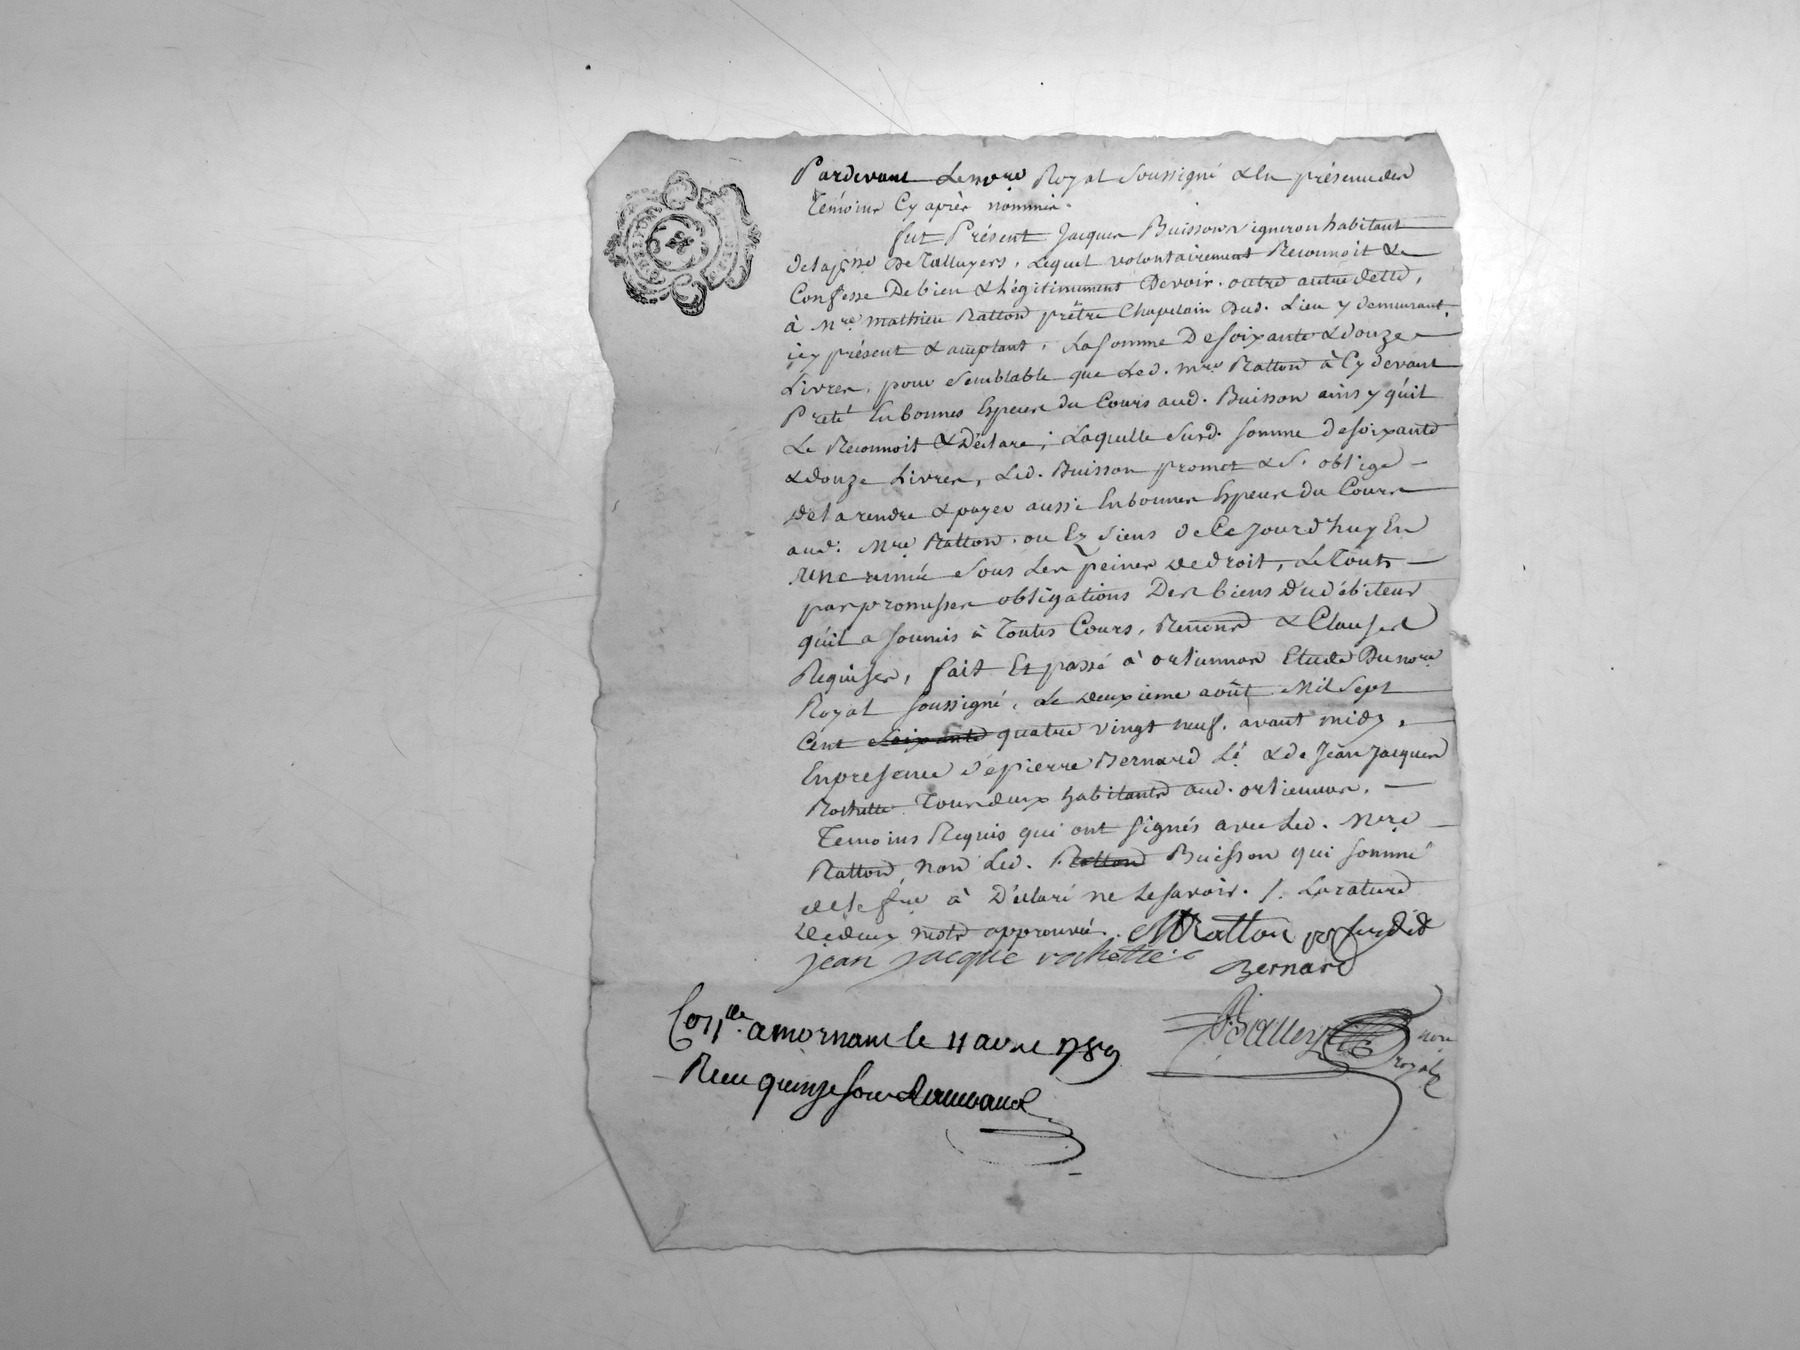 Pardevant Le nore Royal Soussigné & En présence des
Témoins Cy après nommés.
fut Présent Jacques Buisson vigneron habitant
de la psse De Talluyers, Lequel volontairement Reconnoit &
Confesse De bien & Légitimement Devoir. outre autre dette,
à Mre mathieu Ratton prêtre Chapelain Dud. Lieu y demeurant,
icy présent & acceptant, La somme De soixante & douze
Livres, pour semblable que Led. Mre Ratton à Cy devant
Prêté En bonnes Espèces du Cours aud. Buisson ainsy qu'il
Le Reconnoit & Déclare; Laquelle susd. somme de soixante
& douze Livres, Led. Buisson promet & s'oblige
de la rendre & payer aussi En bonnes Espèces du Cours
aud. Mre Ratton. ou Ez Siens de Ce Jourd'huy En
une année Sous Les peines de droit, Le Tout
par promesses obligations Des biens Du débiteur
qu'il a soumis à Toutes Cours, Renonce & Clauses
Requises, fait Et passé à orliennas Etude Du nore
Royal soussigné, Le deuxième août Mil Sept
Cent soixante quatre vingt neuf. avant midy,
En presence de pierre Bernard Lé & de Jean Jacques
Rochette Tous deux habitants aud. orliennas,
Temoins Requis qui ont signés avec Led. Mre
Ratton, non Led. Ratton Buisson qui sommé
de le fre à Déclaré ne Le savoir. /. La rature
de deux mots approuvée. MRatton pr susdid
jean jacque rochette Bernard
Conlle a mornant le 11 aout 1789
Balley nore
royal
Recu quinze sous